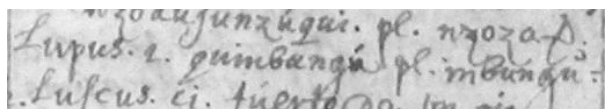 nzoaugunzuqui. pl. nzoza
Lupus. i. quimbangú pl. imbungú.
Luscus. ci. tuerto